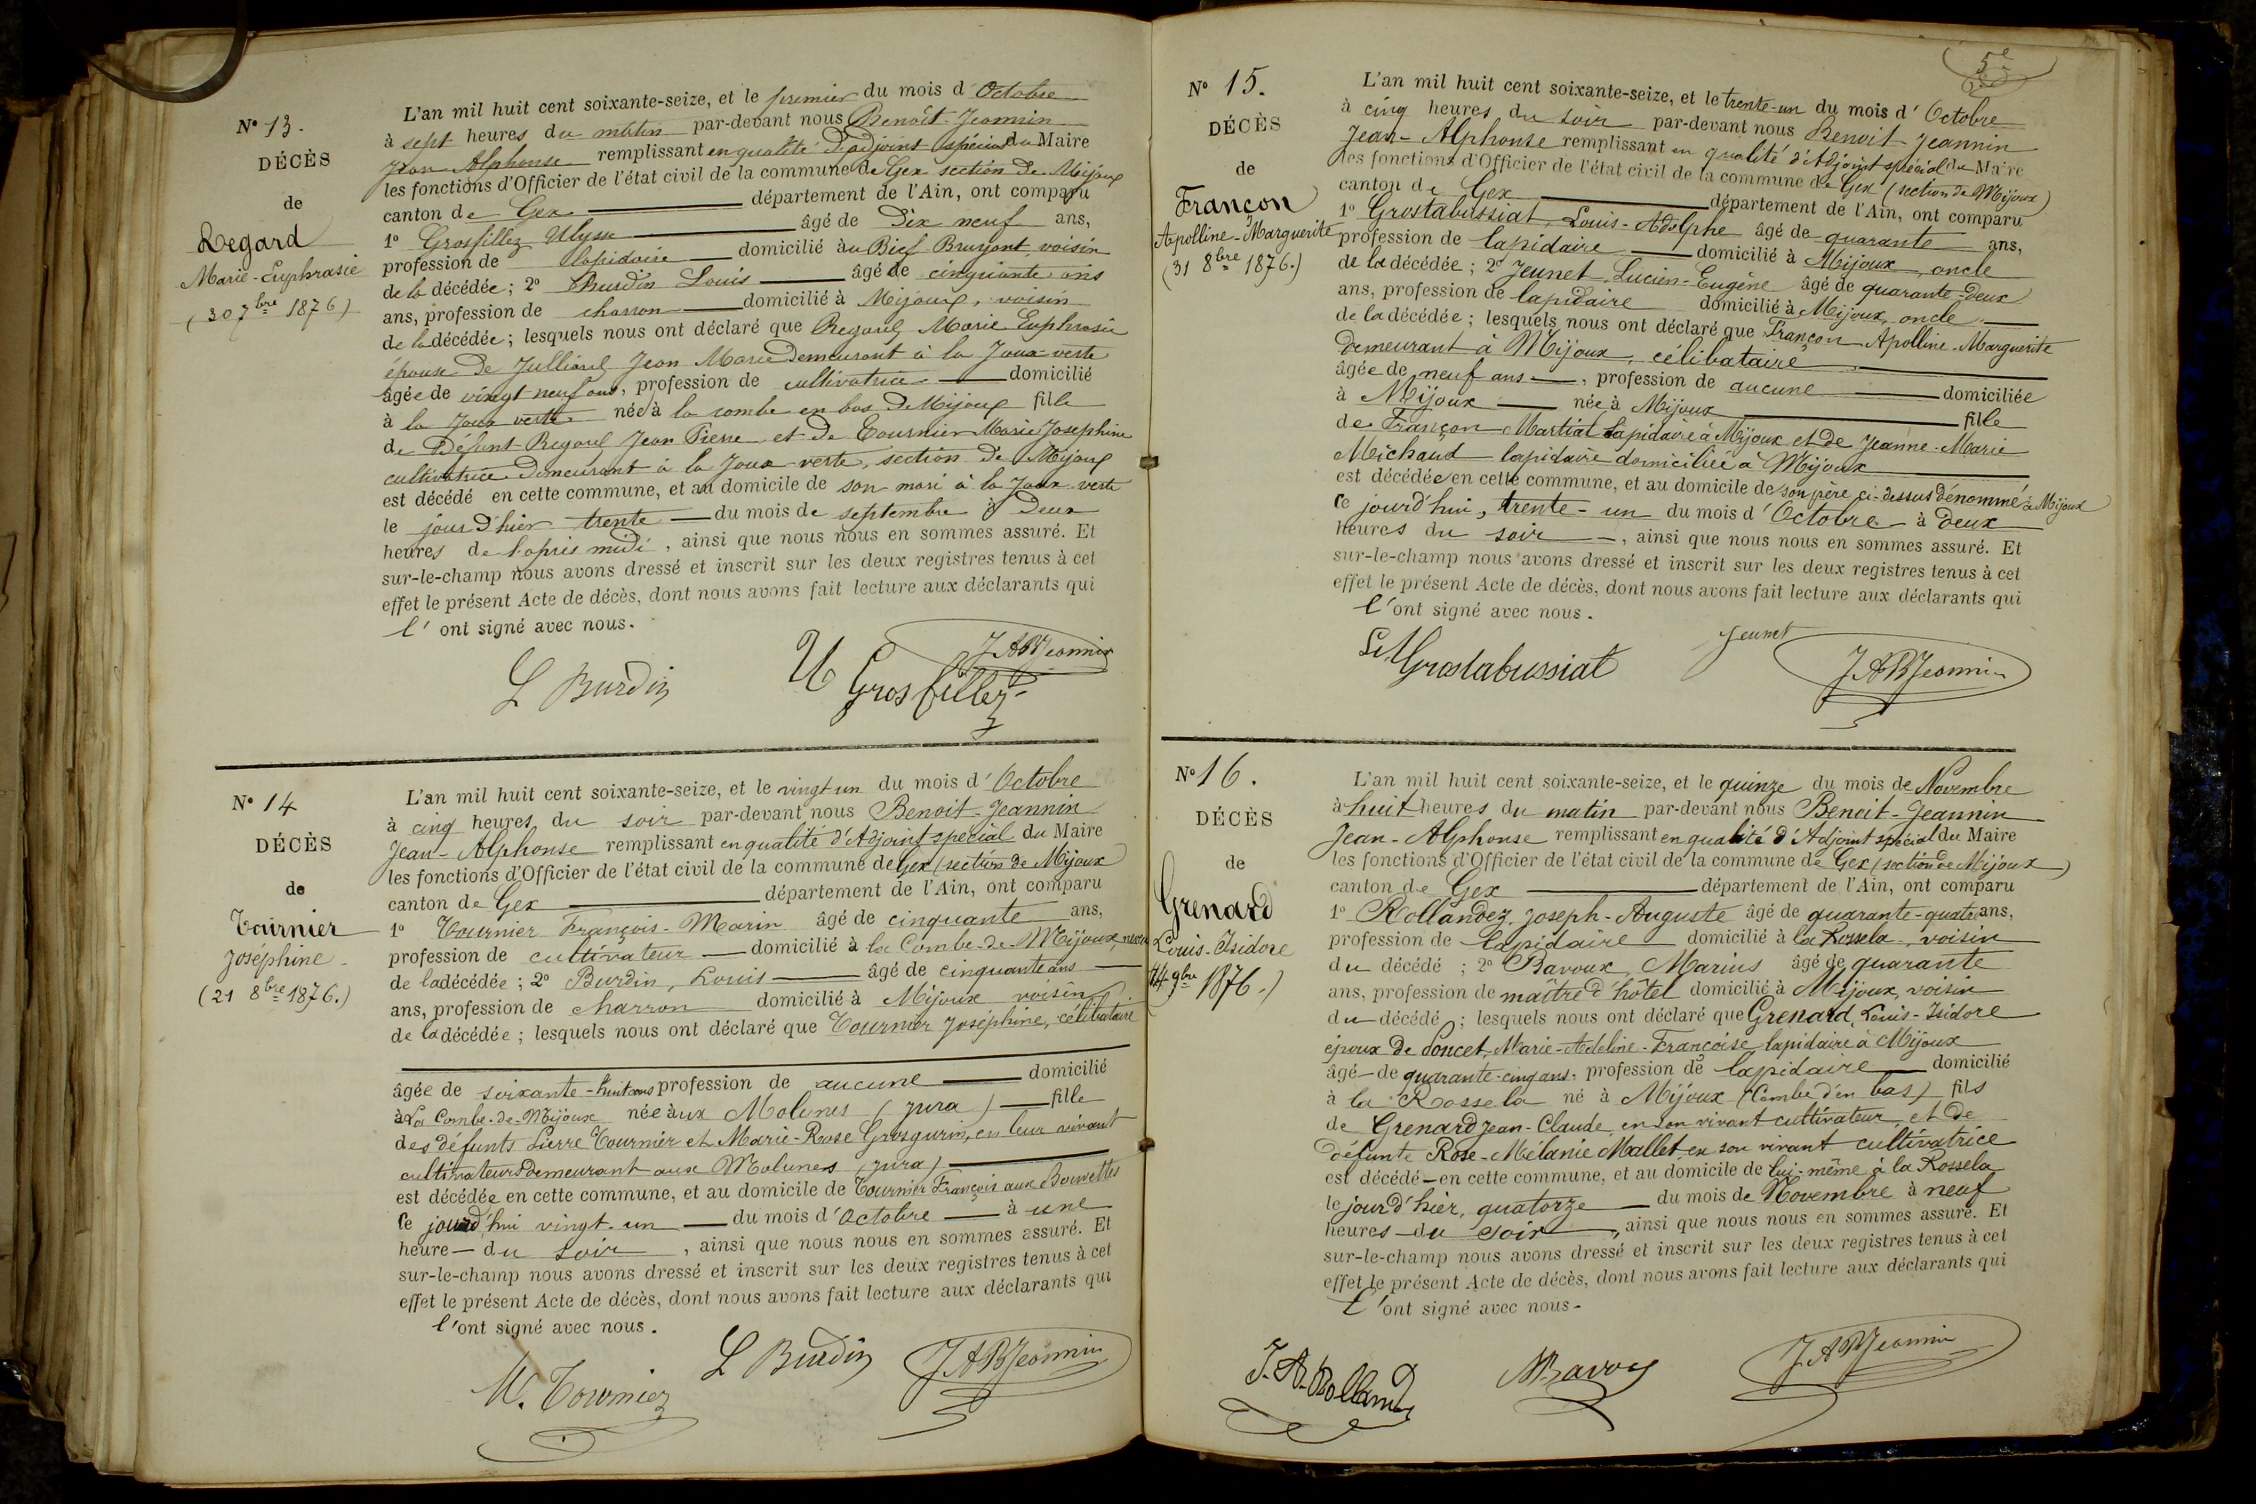 N° 13.
DÉCÈS
de
Regard
Marie-Euphrasie
(30 7bre 1876)
L'an mil huit cent soixante-seize, et le premier du mois d'Octobre
à sept heures du matin par-devant nous Benoit-Jeannin
Jean Alphonse remplissant en qualité d'adjoint spécial du Maire
les fonctions d'Officier de l'état civil de la commune de Gex section de Mijoux
canton de Gex département de l'Ain, ont comparu
1° Grosfillez Ulysse âgé de Dix neuf ans,
profession de lapidaire domicilié au Bief Brunont, voisin
de la décédée ; 2° Burdin Louis âgé de cinquante ans
ans, profession de charron domicilié à Mijoux, voisin
de la décédée ; lesquels nous ont déclaré que Regard Marie Euphrasie
épouse de Julliard Jean Marie demeurant à la Joux-verte
âgée de vingt neuf ans, profession de cultivatrice domicilié
à la Joux verte née à la combe en bas de Mijoux fille
de Défunt Regard Jean Pierre et de Tournier Marie Josephine
cultivatrice demeurant à la Joux-verte, section de Mijoux
est décédé en cette commune, et au domicile de son mari à la Joux verte
le jour d'hier trente du mois de septembre à Deux
heures de l'apris midi, ainsi que nous nous en sommes assuré. Et
sur-le-champ nous avons dressé et inscrit sur les deux registres tenus à cet
effet le présent Acte de décès, dont nous avons fait lecture aux déclarants qui
l'ont signé avec nous.
L Burdin U Grosfillez JABJeannin
N° 14
DÉCÈS
de
Tournier
Joséphine
(21 8bre 1876.)
L'an mil huit cent soixante-seize, et le vingt un du mois d'Octobre
à cinq heures du soir par-devant nous Benoit-Jeannin
Jean-Alphonse remplissant en qualité d'Adjoint spécial du Maire
les fonctions d'Officier de l'état civil de la commune de Gex (section de Mijoux
canton de Gex département de l'Ain, ont comparu
1° Tournier François-Marin âgé de cinquante ans,
profession de cultivateur domicilié à la Combe-de-Mijoux, neveu
de la décédée ; 2° Burdin, Louis âgé de cinquante ans
ans, profession de charron domicilié à Mijoux voisin
de la décédée ; lesquels nous ont déclaré que Tournier Joséphine, célibataire
âgée de soixante-huit ans profession de aucune domicilié
à La Combe-de-Mijoux née aux Molunes (Jura) fille
des défunts Pierre Tournier et Marie-Rose Grosgurin, en leur vivant
cultivateurs demeurant aux Molunes (Jura)
est décédée en cette commune, et au domicile de Tournier François aux Bouvettes
le jourd'hui vingt-un du mois d'Octobre à une
heure du soir, ainsi que nous nous en sommes assuré. Et
sur-le-champ nous avons dressé et inscrit sur les deux registres tenus à cet
effet le présent Acte de décès, dont nous avons fait lecture aux déclarants qui
l'ont signé avec nous.
M. Tournier L Burdin JABJeannin
5e
N° 15.
DÉCÈS
de
Françon
Apolline-Marguerite
(31 8bre 1876.)
L'an mil huit cent soixante-seize, et le trente-un du mois d'Octobre
à cinq heures du soir par-devant nous Benoit-Jeannin
Jean-Alphonse remplissant en qualité d'Adjoint spécial du Maire
les fonctions d'Officier de l'état civil de la commune de Gex (section de Mijoux)
canton de Gex département de l'Ain, ont comparu
1° Grostabussiat, Louis-Adolphe âgé de quarante ans,
profession de lapidaire domicilié à Mijoux, oncle
de la décédée ; 2° Jeunet, Lucien-Eugène âgé de quarante-deux
ans, profession de lapidaire domicilié à Mijoux, oncle
de la décédée ; lesquels nous ont déclaré que Françon Apolline-Marguerite
demeurant à Mijoux, célibataire
âgée de neuf ans, profession de aucune domiciliée
à Mijoux née à Mijoux fille
de Françon Martial lapidaire à Mijoux et de Jeanne-Marie
Michaud lapidaire domiciliée à Mijoux
est décédée en cette commune, et au domicile de son père ci-dessus dénommé à Mijoux
ce jourd'hui, trente-un du mois d'Octobre à deux
heures du soir, ainsi que nous nous en sommes assuré. Et
sur-le-champ nous avons dressé et inscrit sur les deux registres tenus à cet
effet le présent Acte de décès, dont nous avons fait lecture aux déclarants qui
l'ont signé avec nous.
Grostabussiat Jeunet JABJeannin
N° 16.
DÉCÈS
de
Grenard
Louis-Isidore
(14 9bre 1876.)
L'an mil huit cent soixante-seize, et le quinze du mois de Novembre
à huit heures du matin par-devant nous Benoit-Jeannin
Jean-Alphonse remplissant en qualité d'Adjoint spécial du Maire
les fonctions d'Officier de l'état civil de la commune de Gex (section de Mijoux)
canton de Gex département de l'Ain, ont comparu
1° Rollandez, Joseph-Auguste âgé de quarante-quatre ans,
profession de lapidaire domicilié à la Rossela, voisin
du décédé ; 2° Bavoux, Marius âgé de quarante
ans, profession de maître d'hôtel domicilié à Mijoux, voisin
du décédé ; lesquels nous ont déclaré que Grenard, Louis-Isidore
époux de Poncet, Marie-Adeline-Françoise lapidaire à Mijoux
âgé de quarante-cinq ans, profession de lapidaire domicilié
à la Rossela né à Mijoux (Combe d'en bas) fils
de Grenard Jean-Claude, en son vivant cultivateur, et de
défunte Rose-Mélanie Mallet en son vivant cultivatrice
est décédé en cette commune, et au domicile de lui-même à la Rossela
le jour d'hier, quatorze du mois de Novembre à neuf
heures du soir, ainsi que nous nous en sommes assuré. Et
sur-le-champ nous avons dressé et inscrit sur les deux registres tenus à cet
effet le présent Acte de décès, dont nous avons fait lecture aux déclarants qui
l'ont signé avec nous.
J. A. Rolland MBavoux JABJeannin